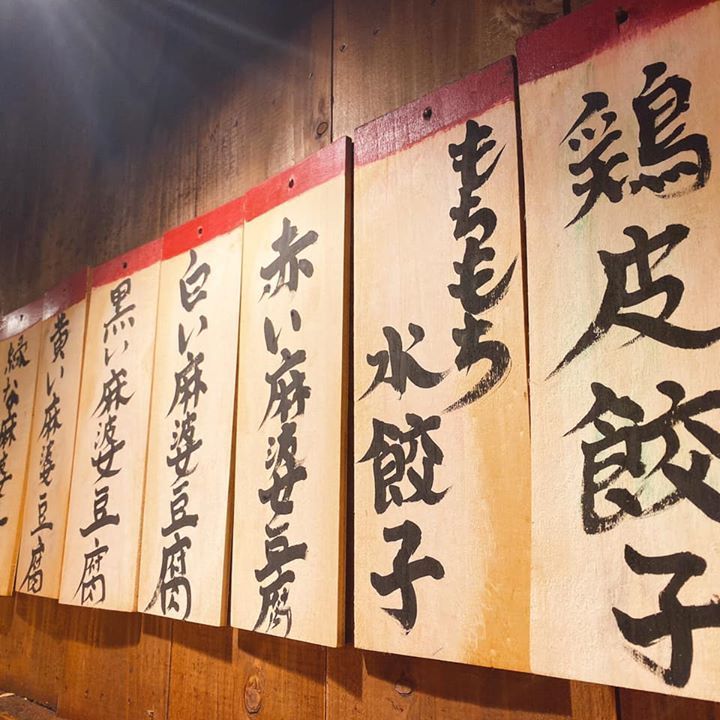 鶏皮餃子
もちもち
水餃子
赤い麻婆豆腐
白い麻婆豆腐
黒い麻婆豆腐
黄い麻婆豆腐
緑な麻婆